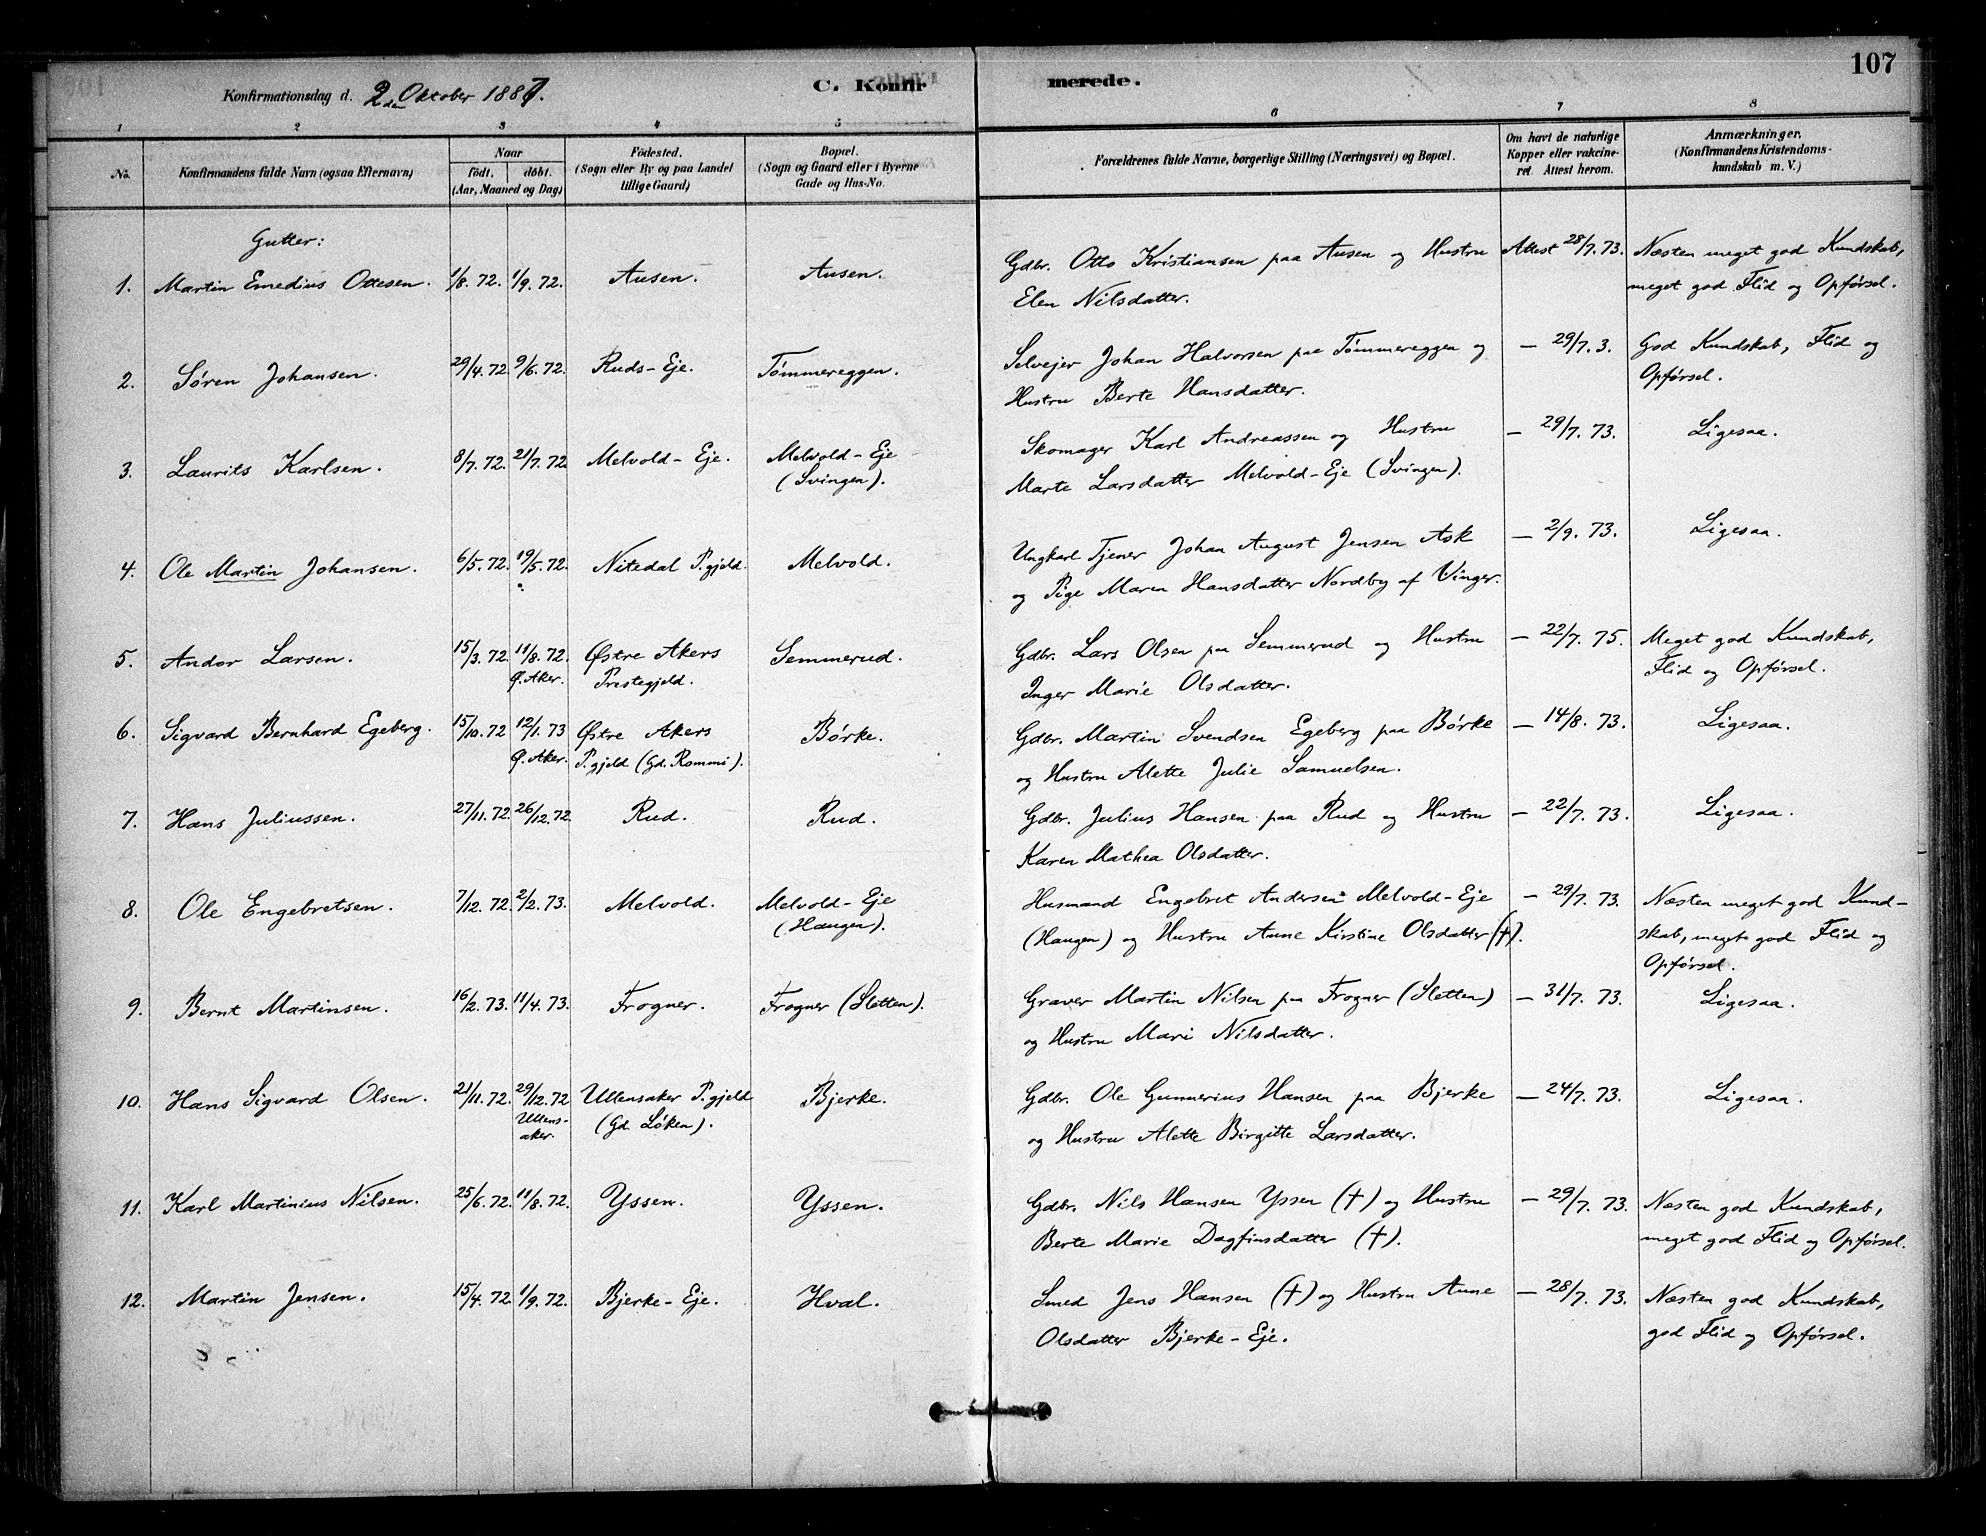 107
Konfirmationsdag d. 2den Oktober 1887.
C. Konfirmerede.
1 2 3 4 5 6 7 8
No.
Konfirmandens fulde Navn (ogsaa Efternavn)
Naar
födt. döbt.
(Aar, Maaned og Dag)
Födested.
(Sogn eller By og paa Landet
tillige Gaard)
Bopæl.
(Sogn og Gaard eller i Byerne
Gade og Hus-No.
Forældrenes fulde Navne, borgerlige Stilling (Næringsvei) og Bopæl.
Om havt de naturlige
Kopper eller vakcine-
ret. Attest herom.
Anmærkninger.
(Konfirmandens Kristendoms-
kundskab m. V.)
Gutter:
1. Martin Emedius Ottesen. 1/8. 72. 1/9. 72. Ausen. Ausen. Gdbr. Otto Kristiansen paa Ausen og Hustru Attest 28/7. 73. Næsten meget god Kundskab,
Elen Nilsdatter. meget god Flid og Opførsel.
2. Søren Johansen. 29/4. 72. 9/6. 72. Ruds-Eje. Tømmereggen. Selvejer Johan Halvorsen paa Tømmereggen og — 29/7. 3. God Kundskab, Flid og
Hustru Berte Hansdatter. Opførsel.
3. Laurits Karlsen. 8/7. 72. 21/7. 72. Melvold-Eje. Melvold-Eje Skomager Karl Andreassen og Hustru — 29/7. 73. Ligesaa.
(Svingen). Marte Larsdatter Melvold-Eje (Svingen).
4. Ole Martin Johansen. 6/5. 72. 19/5. 72. Nitedal P.gjeld. Melvold. Ungkarl Tjener Johan August Jensen Ask — 2/9. 73. Ligesaa.
og Pige Maren Hansdatter Nordby af Vinger.
5. Andor Larsen. 15/3. 72. 11/8. 72. Østre Akers Semmerud. Gdbr. Lars Olsen paa Semmerud og Hustru — 22/7. 75. Meget god Kundskab,
Ø. Aker. Prestegjeld. Inger Marie Olsdatter. Flid og Opførsel.
6. Sigvard Bernhard Egeberg. 15/10. 72 12/1. 73 Østre Akers Børke. Gdbr. Martin Svendsen Egeberg paa Børke — 14/8. 73. Ligesaa.
Ø. Aker. P.gjeld (Gd. Rommi). og Hustru Alette Julie Samuelsen.
7. Hans Juliussen. 27/11. 72. 26/12. 72. Rud. Rud. Gdbr. Julius Hansen paa Rud og Hustru — 22/7. 73. Ligesaa.
Karen Mathea Olsdatter.
8. Ole Engebretsen. 7/12. 72. 2/2. 73. Melvold. Melvold-Eje Husmand Engebret Andersen Melvold-Eje — 29/7. 73. Næsten meget god Kund-
(Haugen). (Haugen) og Hustru Anne Kirstine Olsdatter (†). skab, meget god Flid og
Opførsel.
9. Bernt Martinsen. 16/2. 73. 11/4. 73. Frogner. Frogner (Sletten). Graver Martin Nilsen paa Frogner (Sletten) — 31/7. 73. Ligesaa.
og Hustru Mari Nilsdatter.
10. Hans Sigvard Olsen. 21/11. 72. 29/12. 72 Ullensaker P.gjeld Bjerke. Gdbr. Ole Gunnerius Hansen paa Bjerke — 24/7. 73. Ligesaa.
Ullens-
aker. (Gd. Løken). og Hustru Alette Birgitte Larsdatter.
11. Karl Martinius Nilsen. 25/6. 72. 11/8. 72. Yssen. Yssen. Gdbr. Nils Hansen Yssen (†) og Hustru — 29/7. 73. Næsten god Kundskab,
Berte Marie Dagfinsdatter (†). meget god Flid og Opførsel.
12. Martin Jensen. 15/4. 72. 1/9. 72. Bjerke-Eje. Hval. Smed Jens Hansen (†) og Hustru Anne — 28/7. 73. Næsten god Kundskab,
Olsdatter Bjerke-Eje. god Flid og Opførsel.